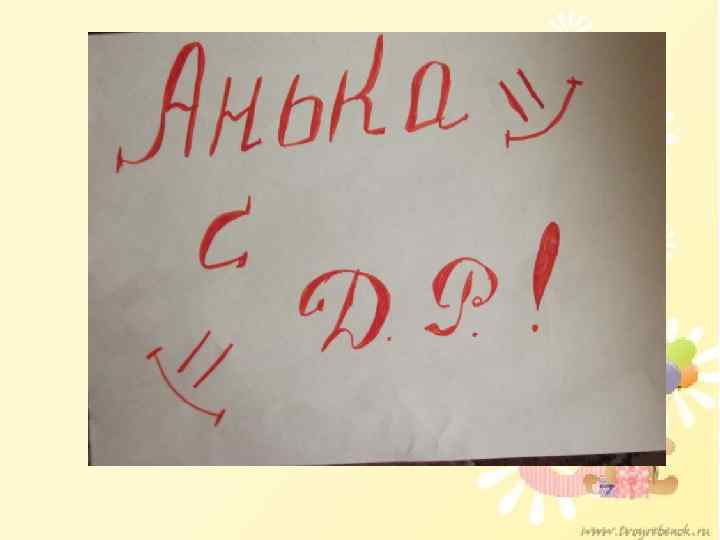 Анька
с
Д.Р.!
www.tvoyrebenok.ru